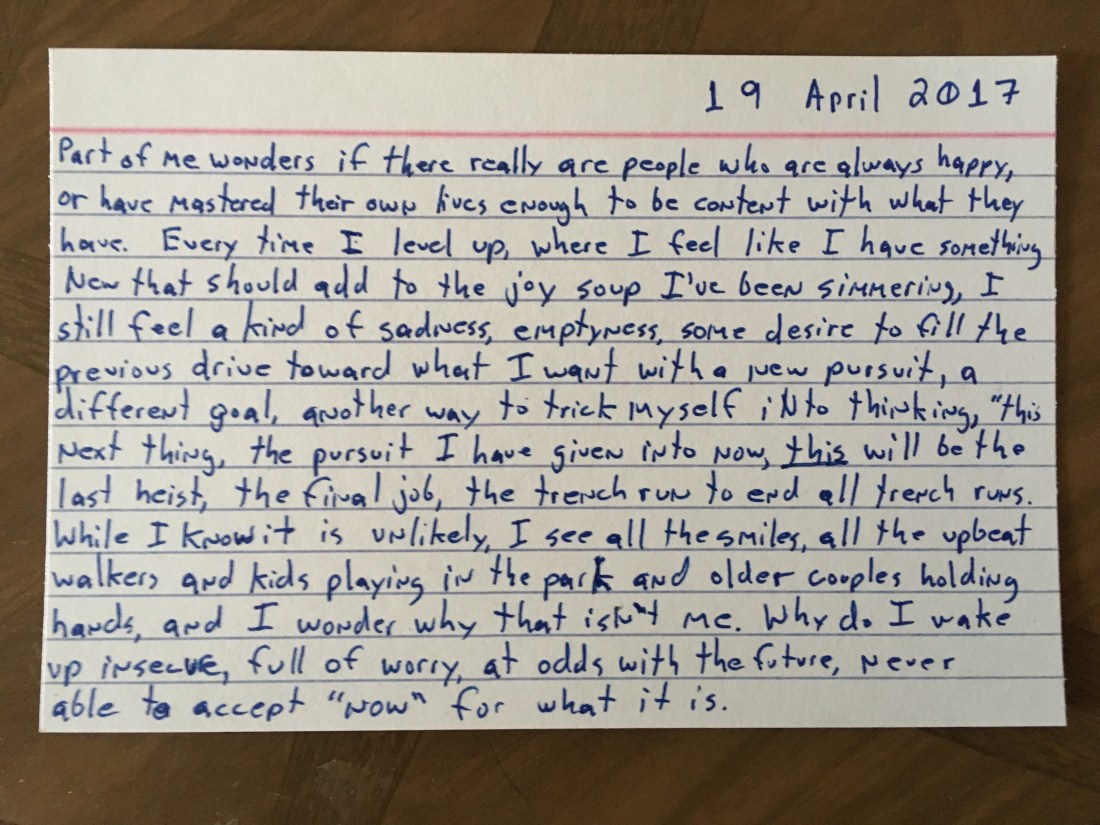 19 April 2017
Part of me wonders if there really are people who are always happy,
or have mastered their own lives enough to be content with what they
have. Every time I level up, where I feel like I have something
New that should add to the joy soup I've been simmering, I
still feel a kind of sadness, emptyness, some desire to fill the
previous drive toward what I want with a new pursuit, a
different goal, another way to trick myself into thinking, "this
next thing, the pursuit I have given into now, this will be the
last heist, the final job, the trench run to end all trench runs.
While I know it is unlikely, I see all the smiles, all the upbeat
walkers and kids playing in the park and older couples holding
hands, and I wonder why that isn't me. Why do I wake
up insecure, full of worry, at odds with the future, never
able to accept "now" for what it is.